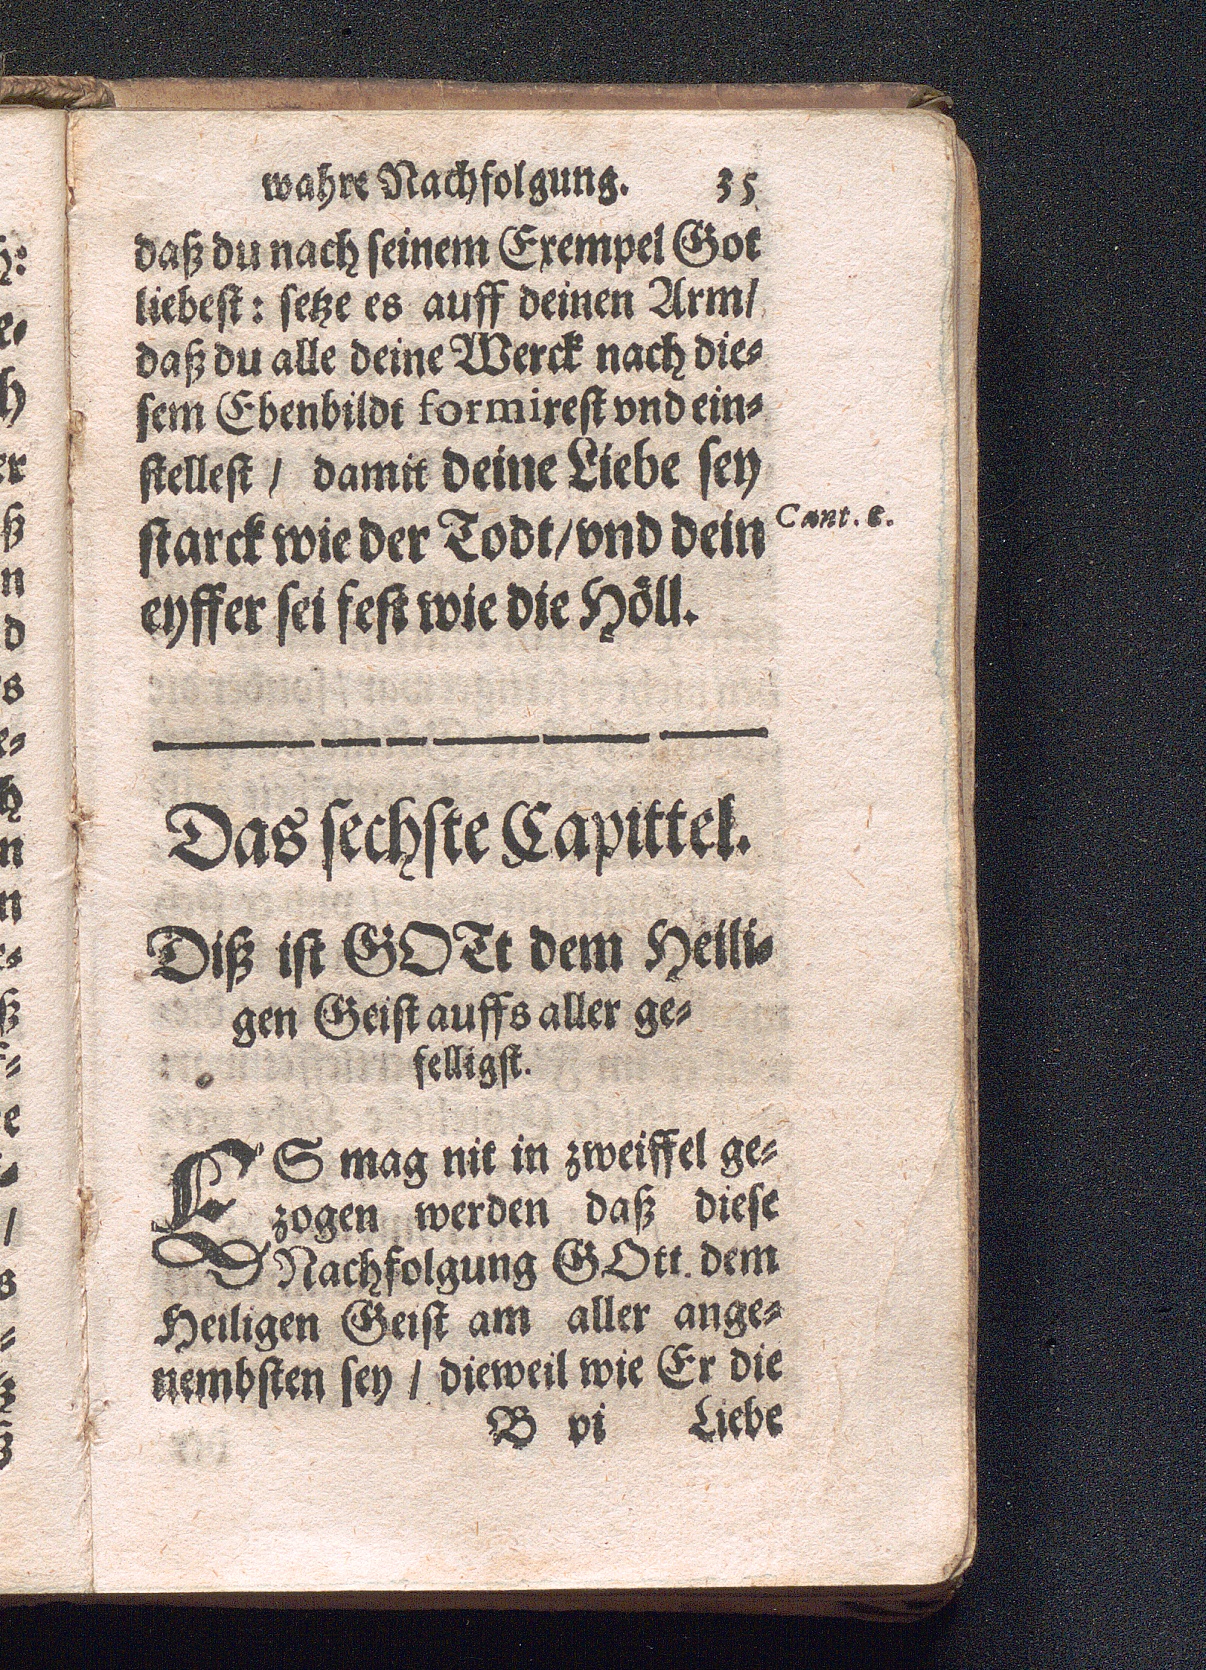 wahre Nachfolgung. 35
daß du nach seinem Exempel Got
liebest: setze es auff deinen Arm/
daß du alle deine Werck nach die-
sem Ebenbildt formirest vnd ein-
stellest / damit deine Liebe sey
starck wie der Todt/vnd dein
Cant. 8.
eyffer sei fest wie die Höll.
Das sechste Capittel.
Diß ist GOTt dem Heili-
gen Geist auffs aller ge-
felligst.
ES mag nit in zweiffel ge-
zogen werden daß diese
Nachfolgung GOtt dem
Heiligen Geist am aller ange-
nembsten sey / dieweil wie Er die
B vi Liebe